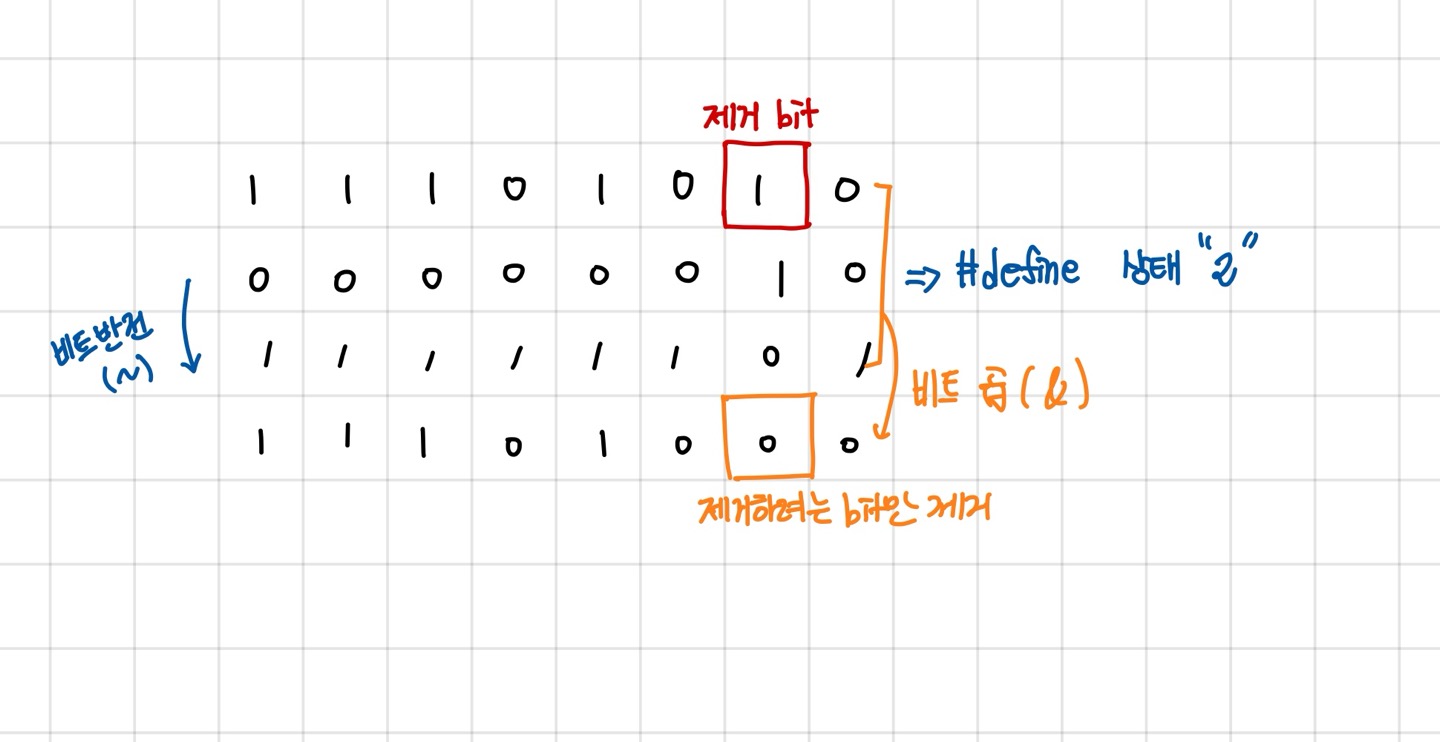 제거 bit
1 1 1 0 1 0 1 0
0 0 0 0 0 0 1 0 => #define 상태 "2"
비트반전
(~)
1 1 1 1 1 1 0 1
비트 곱(&)
1 1 1 0 1 0 0 0
제거하려는 bit만 제거